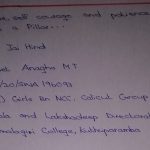 self courage and patience
a Pillar...
Jai Hind
Anagha M T
/20/SWA 196093
) Girls Bn NCC, Calicut Group
and Lakshadeep Directorate
College, Kuthuparamba